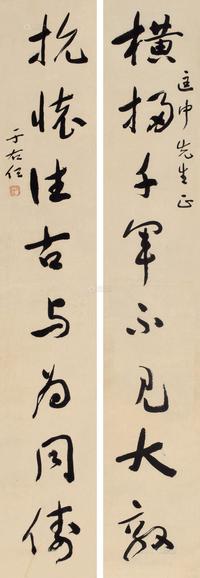 横扫千军不见大敌
匡中先生正
抗怀往古与为同俦
于右任